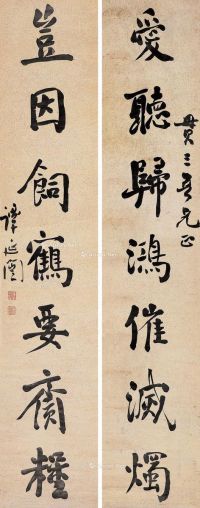 愛聽歸鴻催滅燭
貫三吾兄正
豈因飼鶴要齎糧
譚延闓